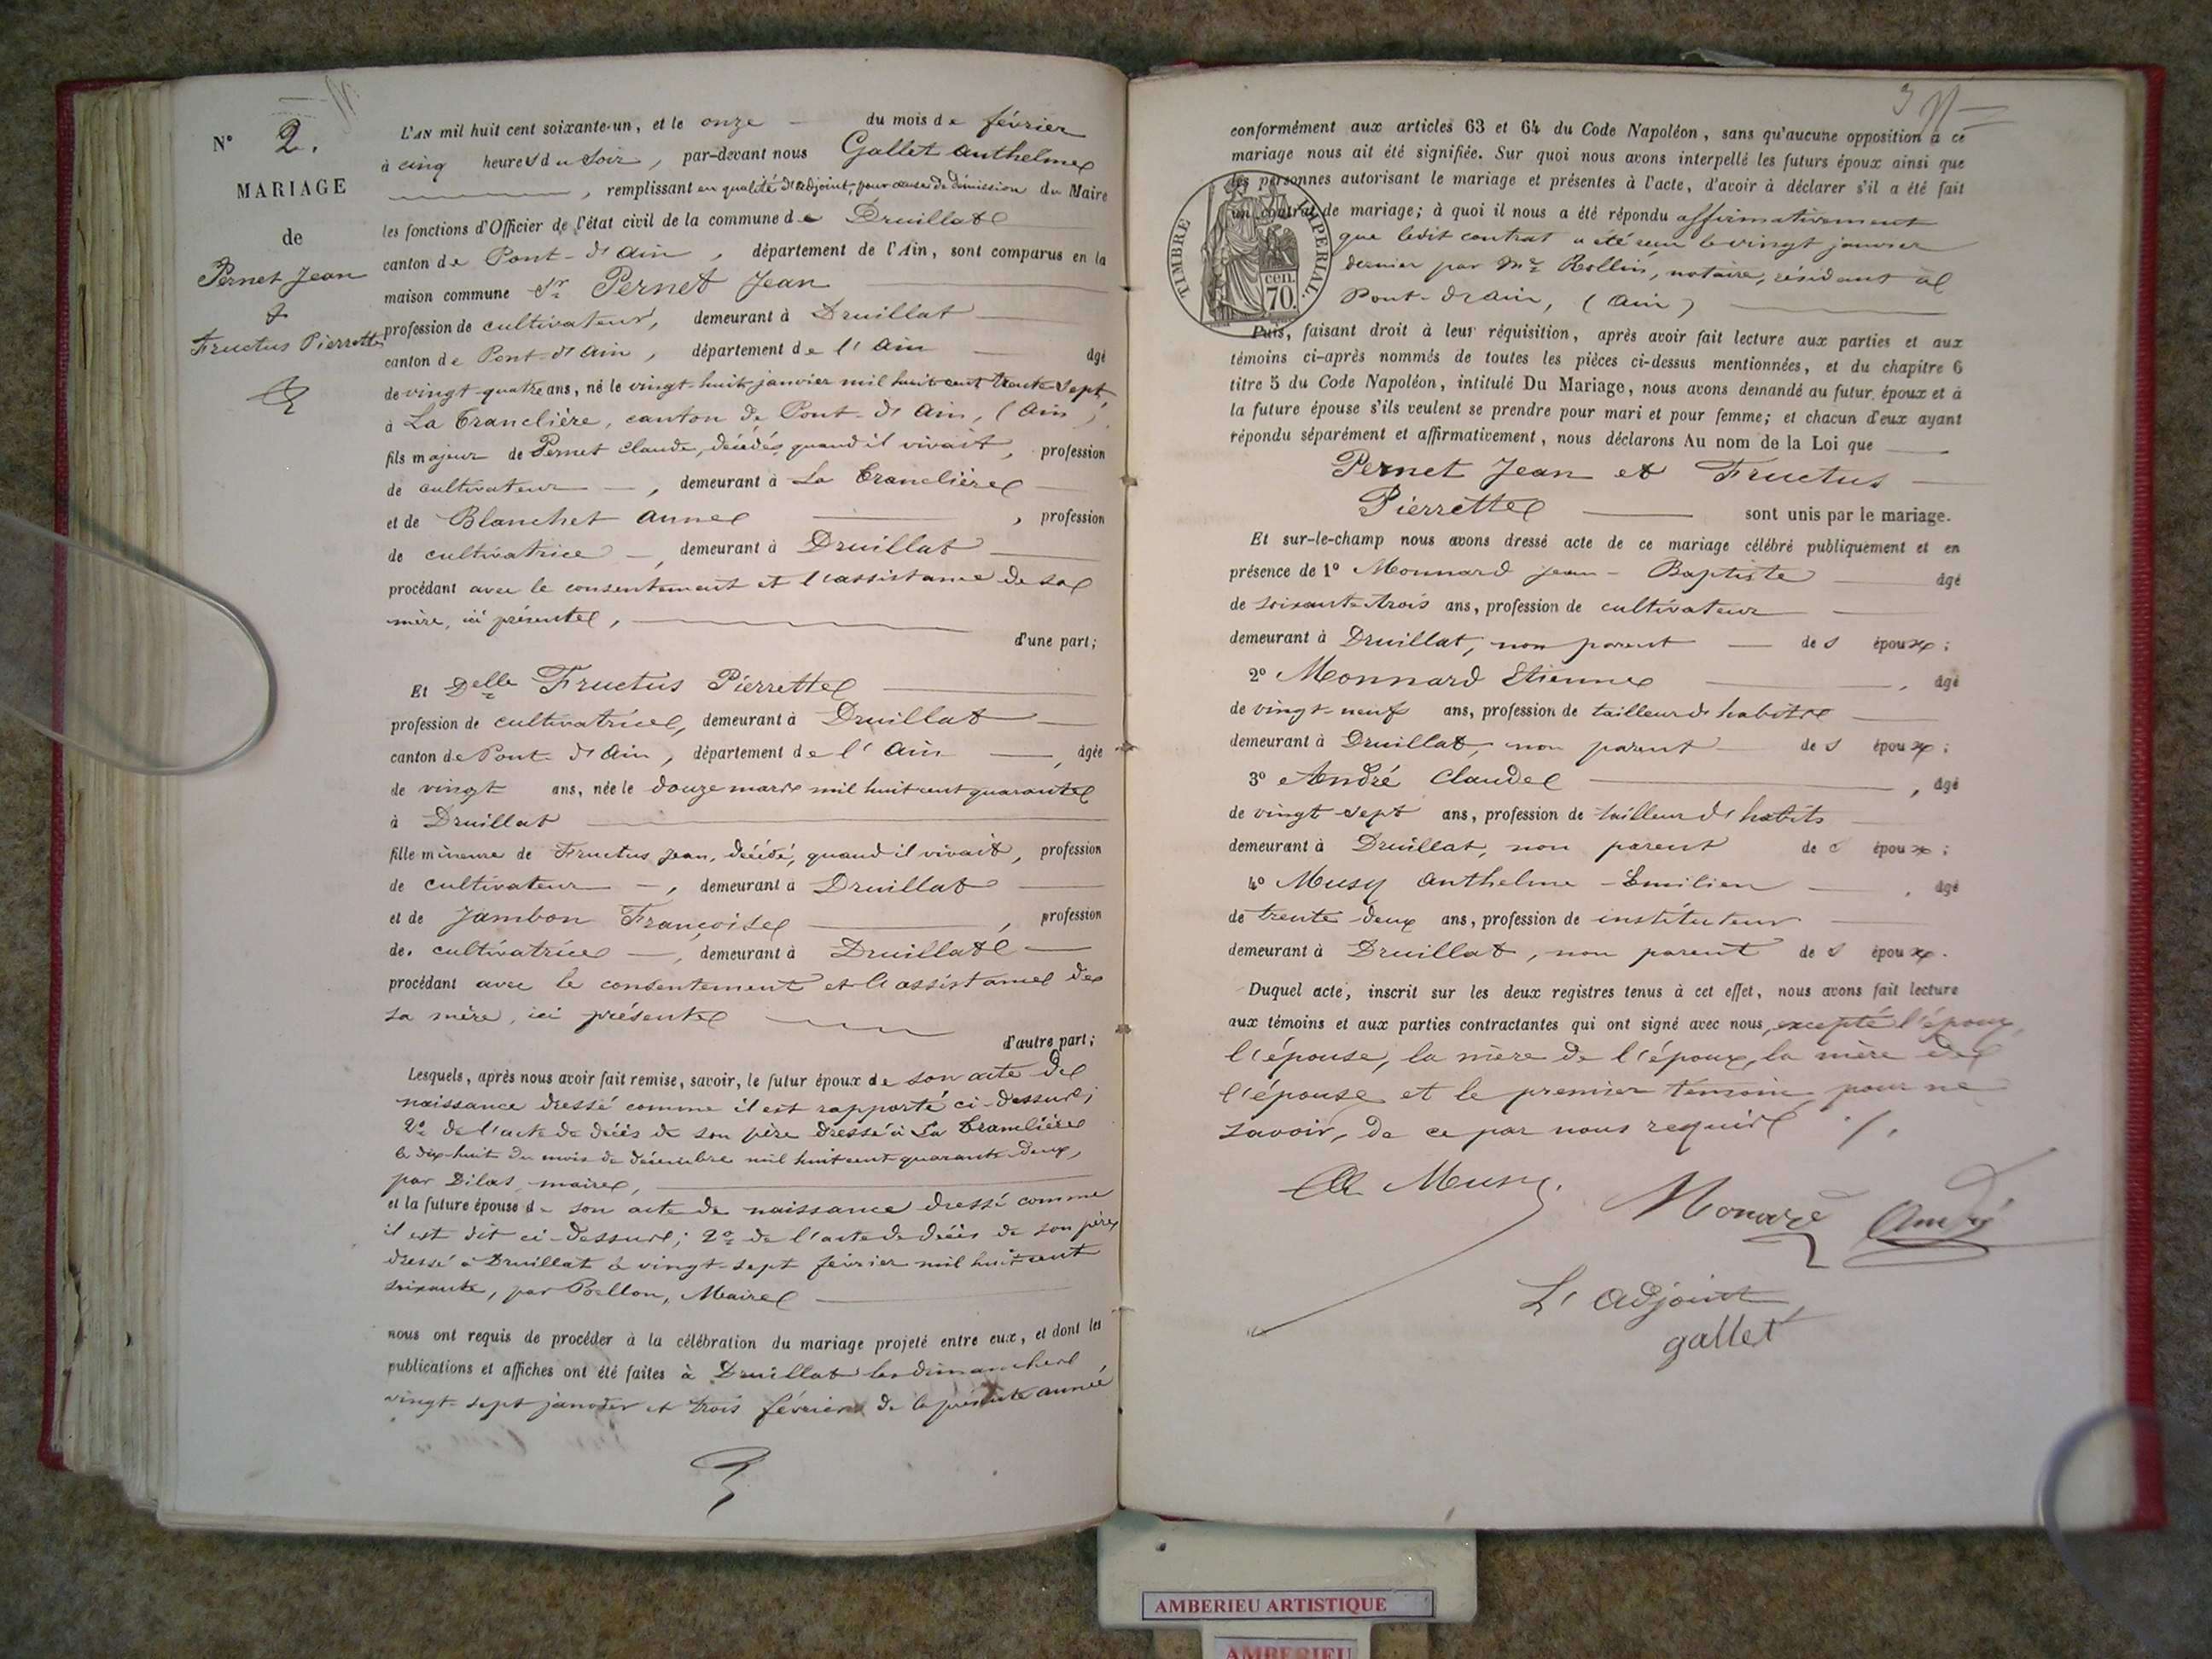 N° 2.
MARIAGE
de
Pernet Jean
&
Fructus Pierrette
L'AN mil huit cent soixante-un, et le onze du mois de février
à cinq heures du soir, par-devant nous Gallet Anthelme
, remplissant en qualité d'adjoint, pour cause de démission du Maire
les fonctions d'Officier de l'état civil de la commune de Druillat
canton de Pont-d'Ain, département de l'Ain, sont comparus en la
maison commune Sr Pernet Jean
profession de cultivateur, demeurant à Druillat
canton de Pont-d'Ain, département de l'Ain âgé
de vingt-quatre ans, né le vingt-huit janvier mil huit cent trente-sept
à La Tranclière, canton de Pont-d'Ain, (Ain),
fils majeur de Pernet Claude, décédé, quand il vivait, profession
de cultivateur, demeurant à La Tranclière
et de Blanchet Anne, profession
de cultivatrice, demeurant à Druillat
procédant avec le consentement et l'assistance de sa
mère, ici présente,
d'une part;
Et Delle Fructus Pierrette
profession de cultivatrice, demeurant à Druillat
canton de Pont-d'Ain, département de l'Ain, âgée
de vingt ans, née le douze mars mil huit cent quarante
à Druillat
fille mineure de Fructus Jean, décédé, quand il vivait, profession
de cultivateur, demeurant à Druillat
et de Jambon Françoise, profession
de cultivatrice, demeurant à Druillat
procédant avec le consentement et l'assistance de
sa mère, ici présente
d'autre part;
Lesquels, après nous avoir fait remise, savoir, le futur époux de son acte de
naissance dressé comme il est rapporté ci-dessus;
2° de l'acte de décès de son père dressé à La Tranclière
le dix-huit du mois de décembre mil huit cent quarante-deux,
par Dilas, maire,
et la future épouse de son acte de naissance dressé comme
il est dit ci-dessus; 2° de l'acte de décès de son père
dressé à Druillat le vingt-sept février mil huit cent
soixante, par Bellon, Maire
nous ont requis de procéder à la célébration du mariage projeté entre eux, et dont les
publications et affiches ont été faites à Druillat les dimanches,
vingt-sept janvier et trois février de la présente année
3
conformément aux articles 63 et 64 du Code Napoléon, sans qu'aucune opposition à ce
mariage nous ait été signifiée. Sur quoi nous avons interpellé les futurs époux ainsi que
les personnes autorisant le mariage et présentes à l'acte, d'avoir à déclarer s'il a été fait
un contrat de mariage; à quoi il nous a été répondu affirmativement
que ledit contrat a été reçu le vingt janvier
dernier par Me Rollin, notaire, résidant à
Pont-d'Ain, (Ain)
TIMBRE IMPERIAL.
cen.
70.
Puis, faisant droit à leur réquisition, après avoir fait lecture aux parties et aux
témoins ci-après nommés de toutes les pièces ci-dessus mentionnées, et du chapitre 6
titre 5 du Code Napoléon, intitulé Du Mariage, nous avons demandé au futur époux et à
la future épouse s'ils veulent se prendre pour mari et pour femme; et chacun d'eux ayant
répondu séparément et affirmativement, nous déclarons Au nom de la Loi que
Pernet Jean et Fructus
Pierrette sont unis par le mariage.
Et sur-le-champ nous avons dressé acte de ce mariage célébré publiquement et en
présence de 1° Monnard Jean-Baptiste âgé
de soixante-trois ans, profession de cultivateur
demeurant à Druillat, non parent des époux;
2° Monnard Etienne, âgé
de vingt-neuf ans, profession de tailleur d'habits
demeurant à Druillat, non parent des époux;
3° André Claude, âgé
de vingt-sept ans, profession de tailleur d'habits
demeurant à Druillat, non parent des époux;
4° Musy Anthelme-Emilien, âgé
de trente-deux ans, profession de instituteur
demeurant à Druillat, non parent des époux.
Duquel acte, inscrit sur les deux registres tenus à cet effet, nous avons fait lecture
aux témoins et aux parties contractantes qui ont signé avec nous, excepté l'époux,
l'épouse, la mère de l'époux, la mère de
l'épouse et le premier témoin, pour ne
savoir, de ce par nous requis ./.
Musy. Monard André
L'adjoint
gallet
AMBERIEU ARTISTIQUE
AMBERIEU